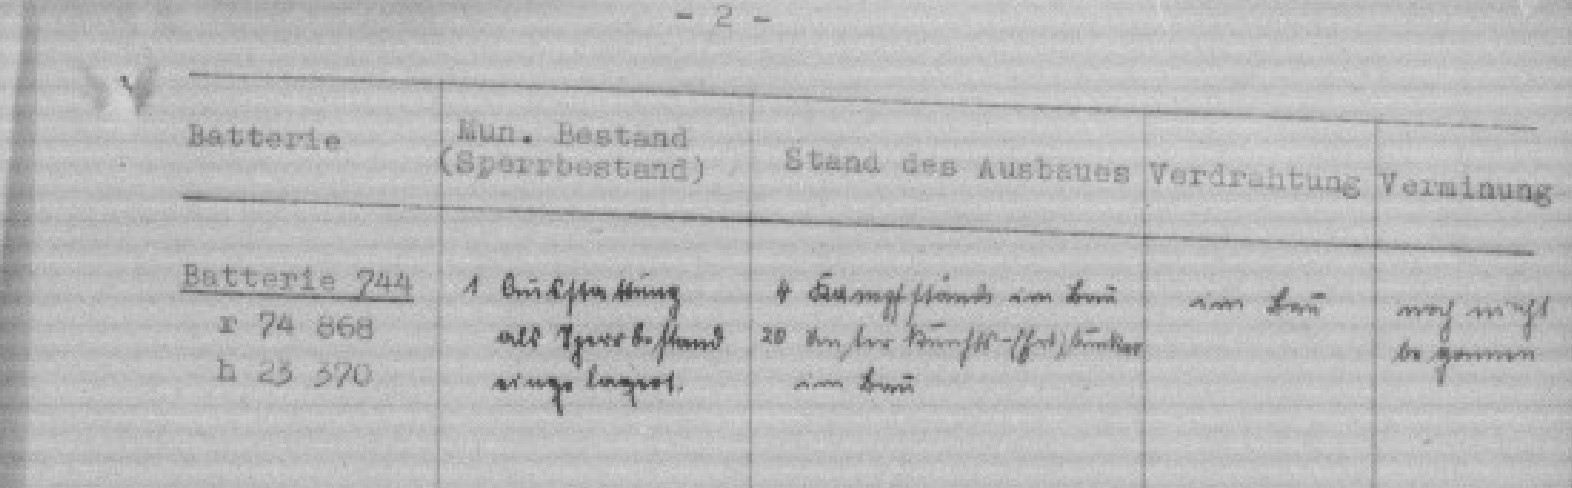 - 2 -
Batterie
Mun. Bestand
(Sperrbestand)
Stand des Ausbaues
Verdrahtung
Verminung
Batterie 744
r 74 868
h 23 370
1 Ausstattung
als Sperrbestand
eingelagert.
4 Kampfstände im Bau
20
im Bau
im Bau
noch nicht
begonnen